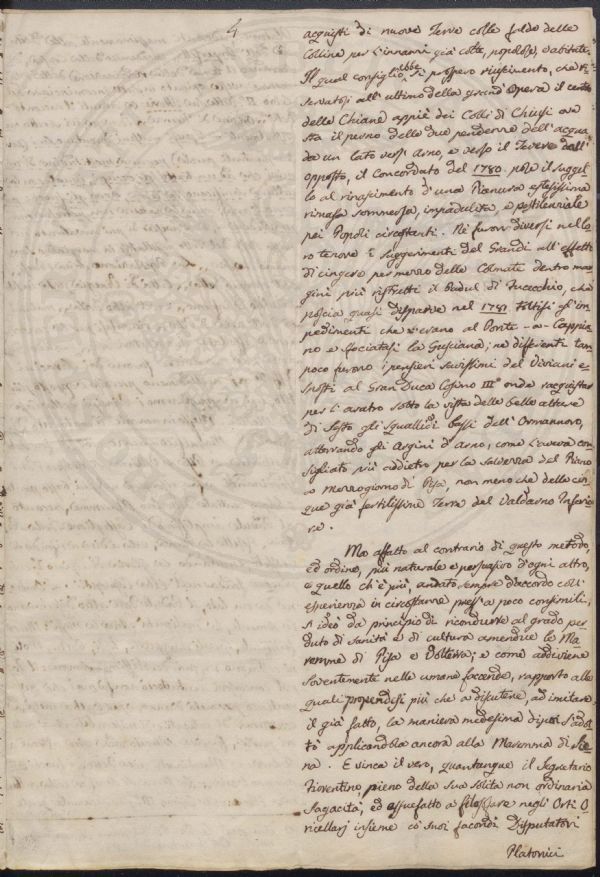 4
acquisti di nuove Terre colle falde delle
Colline per l'innanzi già colte, popolose, e abitate.
Il qual consiglio ebbe sì prospero riuscimento, che ri-
servatosi all'ultimo della grand'Opera il centro
delle Chiane appiè dei Colli di Chiusi ove
sta il perno delle due pendenze dell'acqua
da un lato verso Arno, e verso il Tevere dall'
opposto, il Concordato del 1780 pose il suggel-
lo al rinascimento d'una Pianura estesissima
rimasa sommersa, impadulita e pestilenziale
pei Popoli circostanti. Nè furon diversi nel lo-
ro tenore i suggerimenti del Grandi all'effetto
di cingere per mezzo delle Colmate dentro mar-
gini più ristretti il Padul di Fucecchio, che
poscia quasi disparve nel 1781 toltisi gl'im-
pedimenti che v'erano al Ponte-a-Cappia-
no e sfociatasi la Gusciana; ne differenti tam-
poco furono i pensieri savissimi del Viviani e-
sposti al Gran Duca Cosimo III° onde racquistar
per l'aratro sotto la vista delle belle alture
di Sesto gli squallidi bassi dell'Ormannoro,
atterrando gli Argini d'Arno, come l'aveva con-
sigliato più addietro per la salvezza del Piano
a Mezzogiorno di Pisa, non meno che delle cin-
que già fertilissime Terre del Valdarno Inferio-
re.
Ma affatto al contrario di questo metodo,
ed ordine, più naturale e persuasivo d'ogni altro,
e quello ch'è più, andato sempre d'accordo coll'
esperienza in circostanze press'a poco consimili,
si ideò da principio di ricondurre al grado per-
duto di sanità e di cultura amendue le Ma-
remme di Pisa e Volterra; e come addiviene
soventemente nelle umane faccende, rapporto alle
quali propendesi più che a discutere, ad imitare
il già fatto, la maniera medesima di poi s'adot-
tò applicandola ancora alla Maremma di Sie-
na. E vinca il vero, quantunque il Segretario
Fiorentino, pieno della sua solita non ordinaria
Sagacità, ed assuefatto a filosofare negli Orti O-
ricellarj insieme co' suoi facondi Disputatori
Platonici